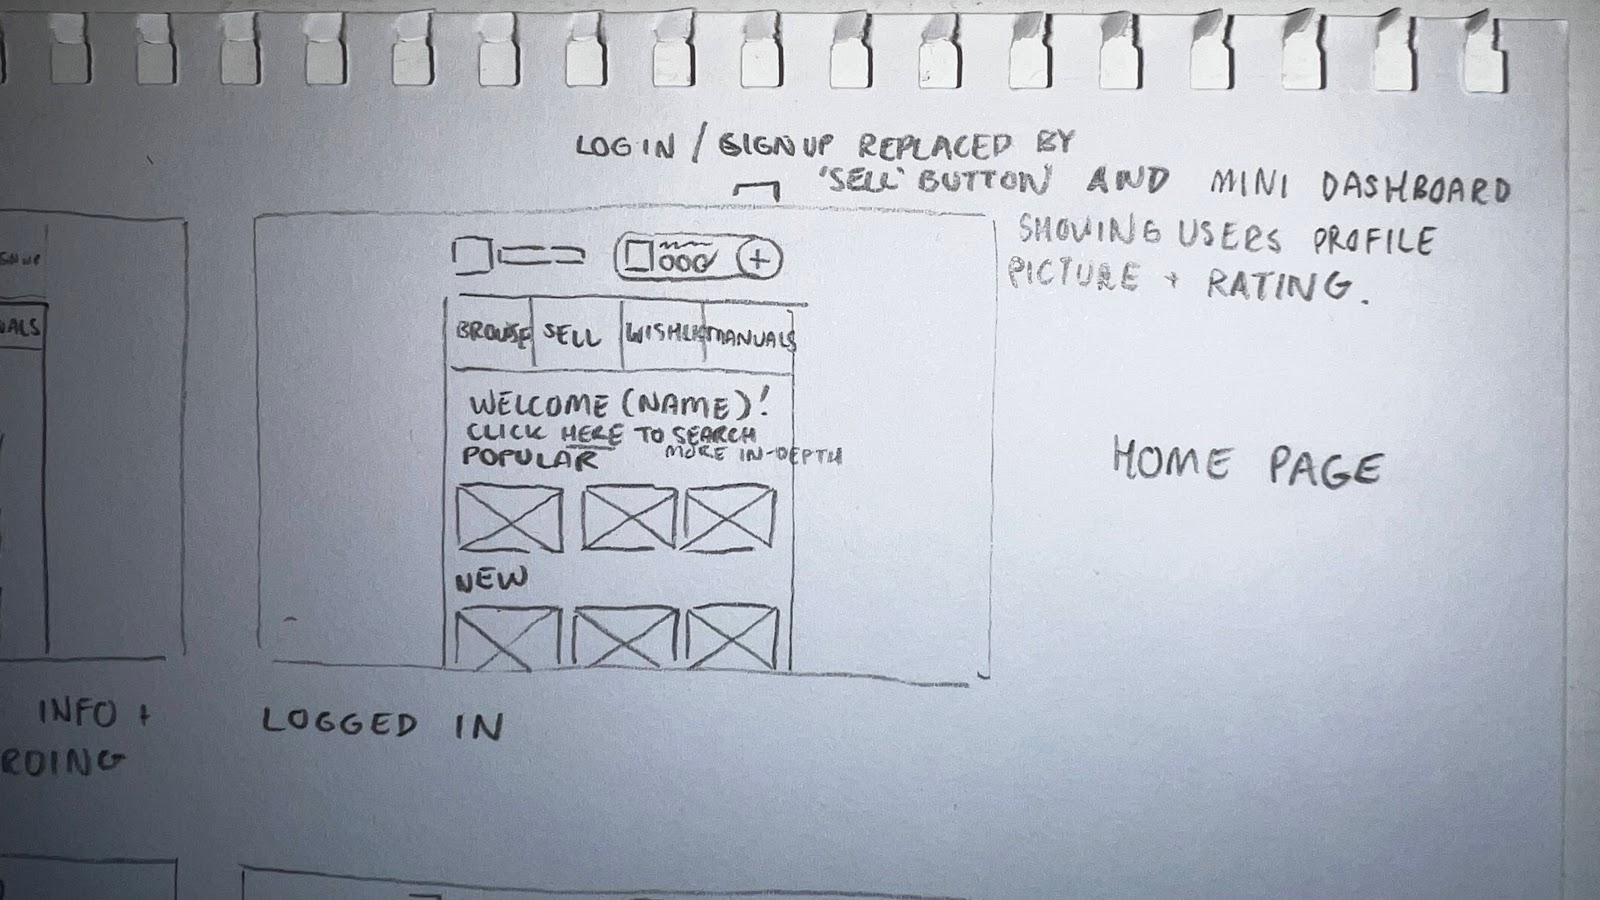 LOG IN / SIGNUP REPLACED BY
'SELL' BUTTON AND MINI DASHBOARD
SHOWING USERS PROFILE
PICTURE + RATING.
BROWSE SELL WISHLIST MANUALS
WELCOME (NAME)!
CLICK HERE TO SEARCH
MORE IN-DEPTH
POPULAR
NEW
HOME PAGE
LOGGED IN
INFO +
RDING